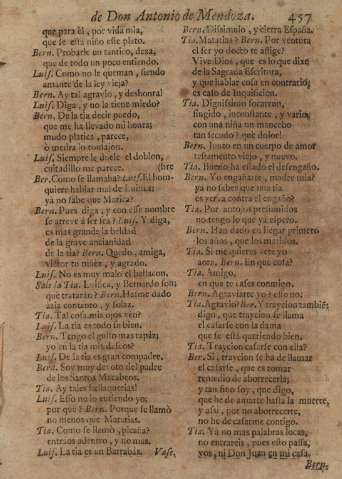 de Don Antonio de Mendoza. 457
que para èl, por vida mia,
que se està niño este plato.
Bern. Probarle un tantico, dexa,
que de todo un poco entiendo.
Luis. Como no le queman, siendo
amante de la ley vieja?
Bern. Ay tal agravio, y deshonra!
Luis. Diga, y no la tiene miedo?
Bern. De la tia decir puedo,
que me ha llevado mi honra;
mudo platica, parece,
ò uviera lo tomajon.
Luis. Siempre le duele el doblon,
cuitadillo me parece.
Ber. Como se llamaba? Luis. El hombre
quiere hablar mal de Luisica:
ya no sabe que Marica?
Bern. Pues diga, y con esse nombre
se atreve à ser lea? Luis. Y diga,
es mas grande la beldad
de la grave ancianidad
de la tia? Bern. Quedo, amiga,
victor tu niñez, y agrado.
Luis. No es muy malo el bellacon.
Sale la Tia. Luisica, y Bernardo son:
què trataràn? Bern. Hasme dado
azia contento, y solaz.
Tia. Tal cosa mis ojos vèn?
Luis. La tia es todo su bien.
Bern. Tengo el gusto mas tapiz;
yo en la tia mis deseos?
Luis. De la tia es gran compadre.
Bern. Soy muy devoto del padre
de los Santos Macabeos.
Tia. Ay tales bellaquerias!
Luis. Esso no lo entiendo yo;
por què? Bern. Porque se llamò
no menos que Matatias.
Tia. Como se llamò, picaña?
entraos adentro, y no mas.
Luis. La tia es un Barrabàs. Vase.
Bern. Dissimulo, y cierra España.
Tia. Matatias? Bern. Por ventura
el ser yo docto te aflige?
Vive Dios, que es lo que dixe
de la Sagrada Escritura,
y que hablar cosa en contrario,
es caso de Inquisicion.
Tia. Dignissimo socarron,
fingido, inconstante, y vario,
con una niña un mancebo
tan sesudo? què dolor!
Bern. Junto en un cuerpo de amor
testamento viejo, y nuevo.
Tia. Bueno ha estado el desengaño.
Bern. Yo engañarte, madre mia?
ya no sabes que una tia
es yerva contra el engaño?
Tia. Por antojos presumidos
no tengo lo que yà espero.
Bern. Han dado en llegar primero
los años, que los maridos.
Tia. Si me quieres vete yo
aora. Bern. En què cosa?
Tia. Amigo,
en que te cases conmigo.
Bern. Agraviarte yo? esso no:
Tia. Agravio? Ber. Y traycion tambiè;
digo, que traycion se llama
el casarse con la dama
que se està queriendo bien.
Tia. Traycion casarse con ella?
Ber. Si, traycion se ha de llamar
el casarle, que es tomar
remedio de aborrecerla;
y tan fino soy, que digo,
que he de amarte hasta la muerte,
y assi, por no aborrecerte,
no he de casarme contigo.
Tia. Yà no mas palabras locas,
no entrareis, pues esto passa,
vos, ni Don Juan en mi casa.
Bern.